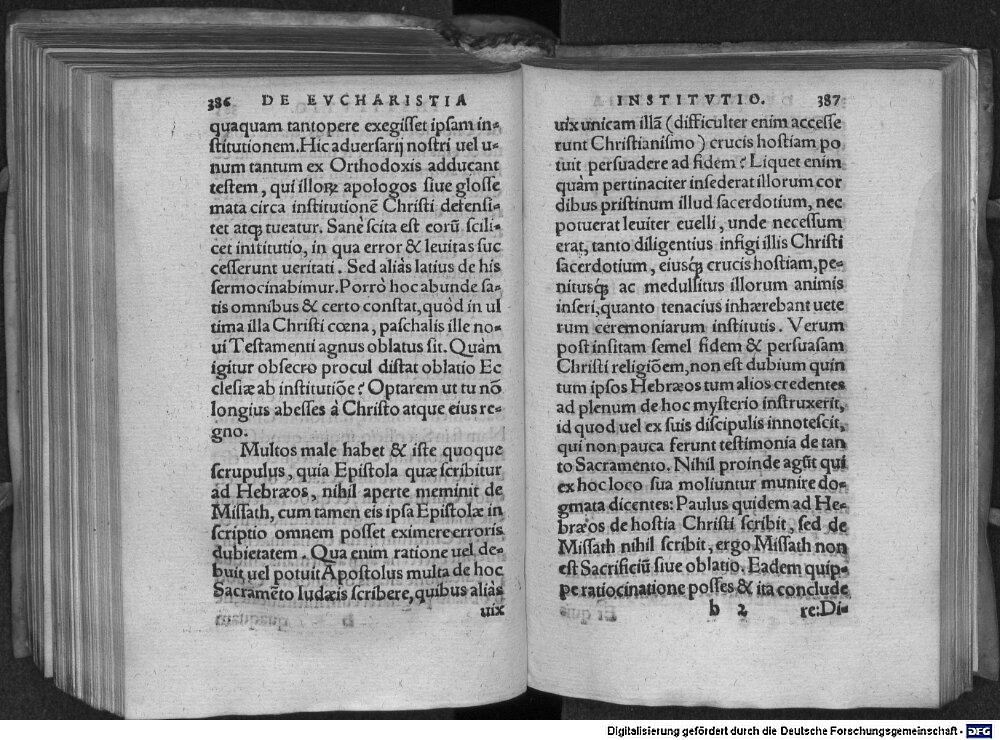 386 DE EVCHARISTIA
quaquam tantopere exegisset ipsam in-
stitutionem. Hic aduersarij nostri uel u-
num tantum ex Orthodoxis adducant
testem, qui illorꝝ apologos siue glosse
mata circa institutionē Christi defensi-
tet atqꝫ tueatur. Sanè scita est eorū scili-
cet inititutio, in qua error & leuitas suc
cesserunt ueritati. Sed aliàs latius de his
sermocinabimur. Porrò hoc abunde sa-
tis omnibus & certo constat, quòd in ul
tima illa Christi cœna, paschalis ille no-
ui Testamenti agnus oblatus sit. Quàm
igitur obsecro procul distat oblatio Ec
clesiæ ab institutiōe? Optarem ut tu nō
longius abesses à Christo atque eius re-
gno.
Multos male habet & iste quoque
scrupulus, quia Epistola quæ scribitur
ad Hebræos, nihil aperte meminit de
Missath, cum tamen eis ipsa Epistolæ in
scriptio omnem posset eximere erroris
dubietatem. Qua enim ratione uel de-
buit, uel potuit Apostolus multa de hoc
Sacramēto Iudæis scribere, quibus aliàs
uix
INSTITVTIO. 387
uix unicam illā (difficulter enim accesse
runt Christianismo) crucis hostiam po
tuit persuadere ad fidem? Liquet enim
quàm pertinaciter insederat illorum cor
dibus pristinum illud sacerdotium, nec
potuerat leuiter euelli, unde necessum
erat, tanto diligentius infigi illis Christi
sacerdotium, eiusqꝫ crucis hostiam, pe-
nitusqꝫ ac medullitus illorum animis
inseri, quanto tenacius inhærebant uete
rum ceremoniarum institutis. Verum
post insitam semel fidem & persuasam
Christi religiōem, non est dubium quin
tum ipsos Hebræos tum alios credentes
ad plenum de hoc mysterio instruxerit,
id quod uel ex suis discipulis innotescit,
qui non pauca ferunt testimonia de tan
to Sacramento. Nihil proinde agūt qui
ex hoc loco sua moliuntur munire do-
gmata dicentes: Paulus quidem ad He-
bræos de hostia Christi scribit, sed de
Missath nihil scribit, ergo Missath non
est Sacrificiū siue oblatio. Eadem quip-
pe ratiocinatione posses & ita conclude
b 2 re: Di-
Digitalisierung gefördert durch die Deutsche Forschungsgemeinschaft - DFG